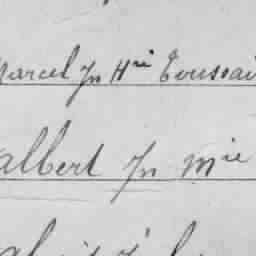 Marcel Jn Hri Toussai
albert Jn Mie